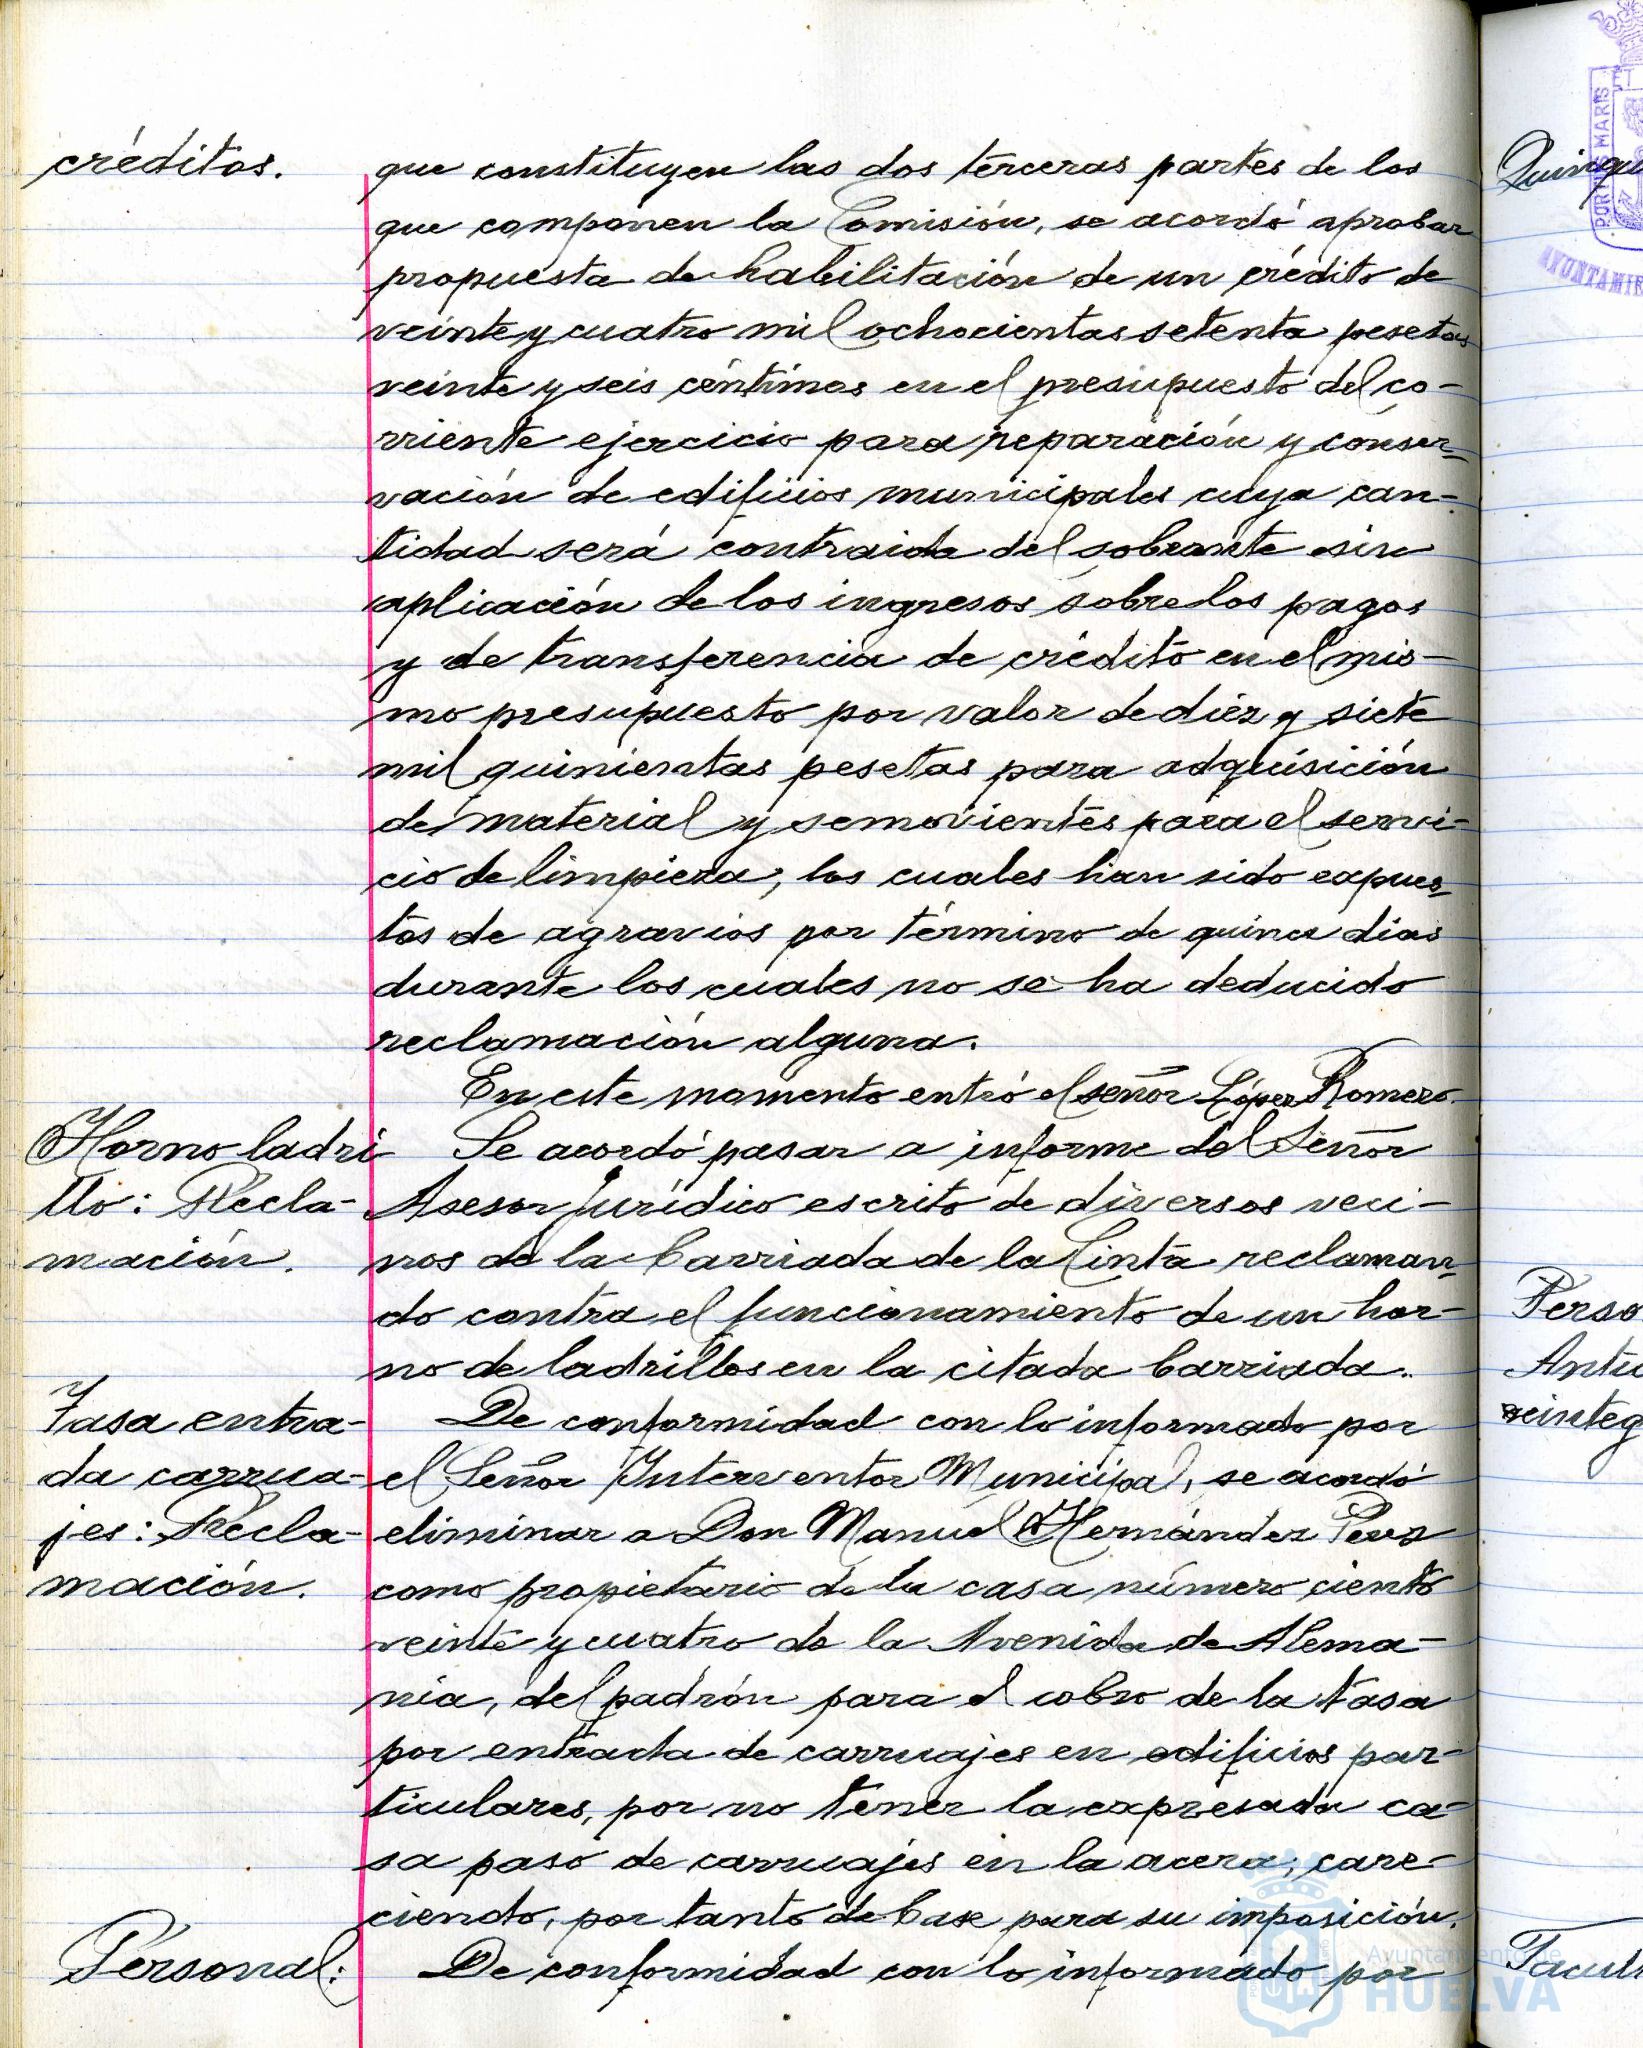 créditos.
que constituyen las dos terceras partes de los
que componen la Comisión, se acordó aprobar
propuesta de habilitación de un crédito de
veinte y cuatro mil ochocientas setenta pesetas
veinte y seis céntimos en el presupuesto del co-
rriente ejercicio para reparación y conser-
vación de edificios municipales cuya can-
tidad será contraida del sobrante sin
aplicación de los ingresos sobre los pagos
y de transferencia de crédito en el mis-
mo presupuesto por valor de diez y siete
mil quinientas pesetas para adquisición
de material y semovientes para el servi-
cio de limpieza, los cuales han sido expues-
tos de agravios por término de quince dias
durante los cuales no se ha deducido
reclamación alguna.
En este momento entró el señor López Romero.
Horno ladri
llo: Recla-
mación.
Se acordó pasar a informe del Señor
Asesor Jurídico escrito de diversos veci-
nos de la barriada de la Cinta reclaman-
do contra el funcionamiento de un hor-
no de ladrillos en la citada barriada.
Tasa entra-
da carrua-
jes: Recla-
mación.
De conformidad con lo informado por
el Señor Interventor Municipal, se acordó
eliminar a Don Manuel Hernández
como propietario de la casa número ciento
veinte y cuatro de la Avenida de Alema-
nia, del padrón para el cobro de la tasa
por entrada de carruajes en edificios par-
ticulares, por no tener la expresada ca-
sa paso de carruajes en la acera, care-
ciendo, por tanto de base para su imposición.
Personal:
De conformidad con lo informado por
Quinqu
Perso
Antic
reinteg
Facult
PORTUS MARIS
ET
AYUNTAMIE
Ayuntamiento de
HUELVA